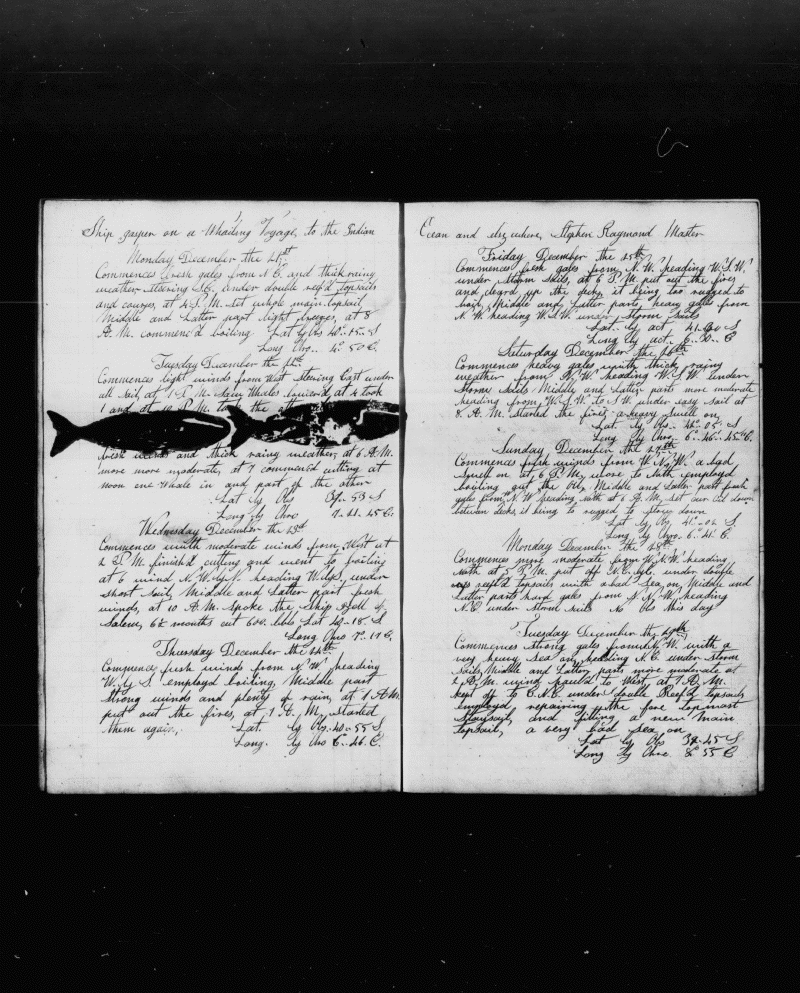 Ship Jasper on a Whaling Voyage, to the Indian
Monday December the 21st
Commences fresh gales from N E, and thick rainy
weather steering S.E. under double reef'd topsails
and courses, at 4 P.M. set whole main topsail,
Middle and Latter part light breezes, at 8
A. M. commenc'd boiling. Lat by Obs 40..15..S
Long Chro.. 4°.50 E.
Tuesday December the 22d.
Commences light winds from West Steering East under
all sail, at 1 P.M. Saw Whales, at 4 took
1 and at 10 P.M. took the
fresh winds and thick rainy weather, at 6 A.M.
more moderate, at 7 commenc'd cutting at
noon one Whale in and part of the other
Lat by Obs 39..53 S
Long by Chro 7..11..45 E.
Wednesday December the 23d
Commences with moderate winds from West at
2 P.M. finish'd cutting and went to boiling
at 6 wind N.W.by N. heading W.by S, under
short sail, Middle and Latter part fresh
winds, at 10 A.M. Spoke the Ship of
Salem, 6½ months out 600. bbls Lat 40..18.S
Long Chro 7°.19 E,
Thursday December the 24th
Commence fresh winds from N W, heading
W.by S employd boiling, Middle part
strong winds and plenty of rain, at 1 A.M.
put out the fires, at 1 A. M, started
them again,. Lat. by Obs.40..55 S
Long. by Chro 6..46. E.
Ocean and elsewhere, Stephen Raymond Master
Friday December the 25th
Commences fresh gales from N.W. heading W.S.W.
under Storm Sails, at 6 P.M. put out the fires
and cleard up the decks, it being too rugged to
boil, Middle and Latter part, heavy gales from
N.W. heading W.S.W. under Storm Sails
Lat. by act. 41..30 S
Long by act. 6..30. E
Saturday December the 26th
Commences heavy gales with thick rainy
weather from N.W. heading W.S.W. under
Storm Sails Middle and Latter parts more moderate
heading from W.S.W. to S.W. under easy sail at
8. A.M. started the fires a heavy swell on,
Lat. by Obs..
Long by Chro 6°..46'.45" E.
Sunday December the 27th
Commences fresh winds from W.N.W. a bad
swell on at 6 P.M. wore to North employed
boiling out the Oil, Middle and Latter part fresh
gales from N.W heading North at 6 A.M. set our Oil down
between decks, it being to rugged to stow down
Lat by Obs 41..02 S.
Long by Chro. 6°.41' E.
Monday December the 28th
Commences more moderate from W.N.W. heading
North at 5 P.M. put off N.E.by E. under double
reef'd topsails with a bad Sea on, Middle and
Latter parts hard gales from N.N.W. heading
N.E under storm sails No Obs this day
Tuesday December the 29th
Commences strong gales from N.W. with a
very heavy Sea on, heading N.E. under storm
Sails, Middle and Latter parts more moderate at
2 A.M. wind hauled to West, at 7 A.M.
kept off to E.N.E. under double Reef'd topsails
employd repairing the fore topmost
staysail, and fitting a new Main
topsail, a very bad Sea on
Lat by Obs 39..45 S.
Long by Chro. 8°.55 E